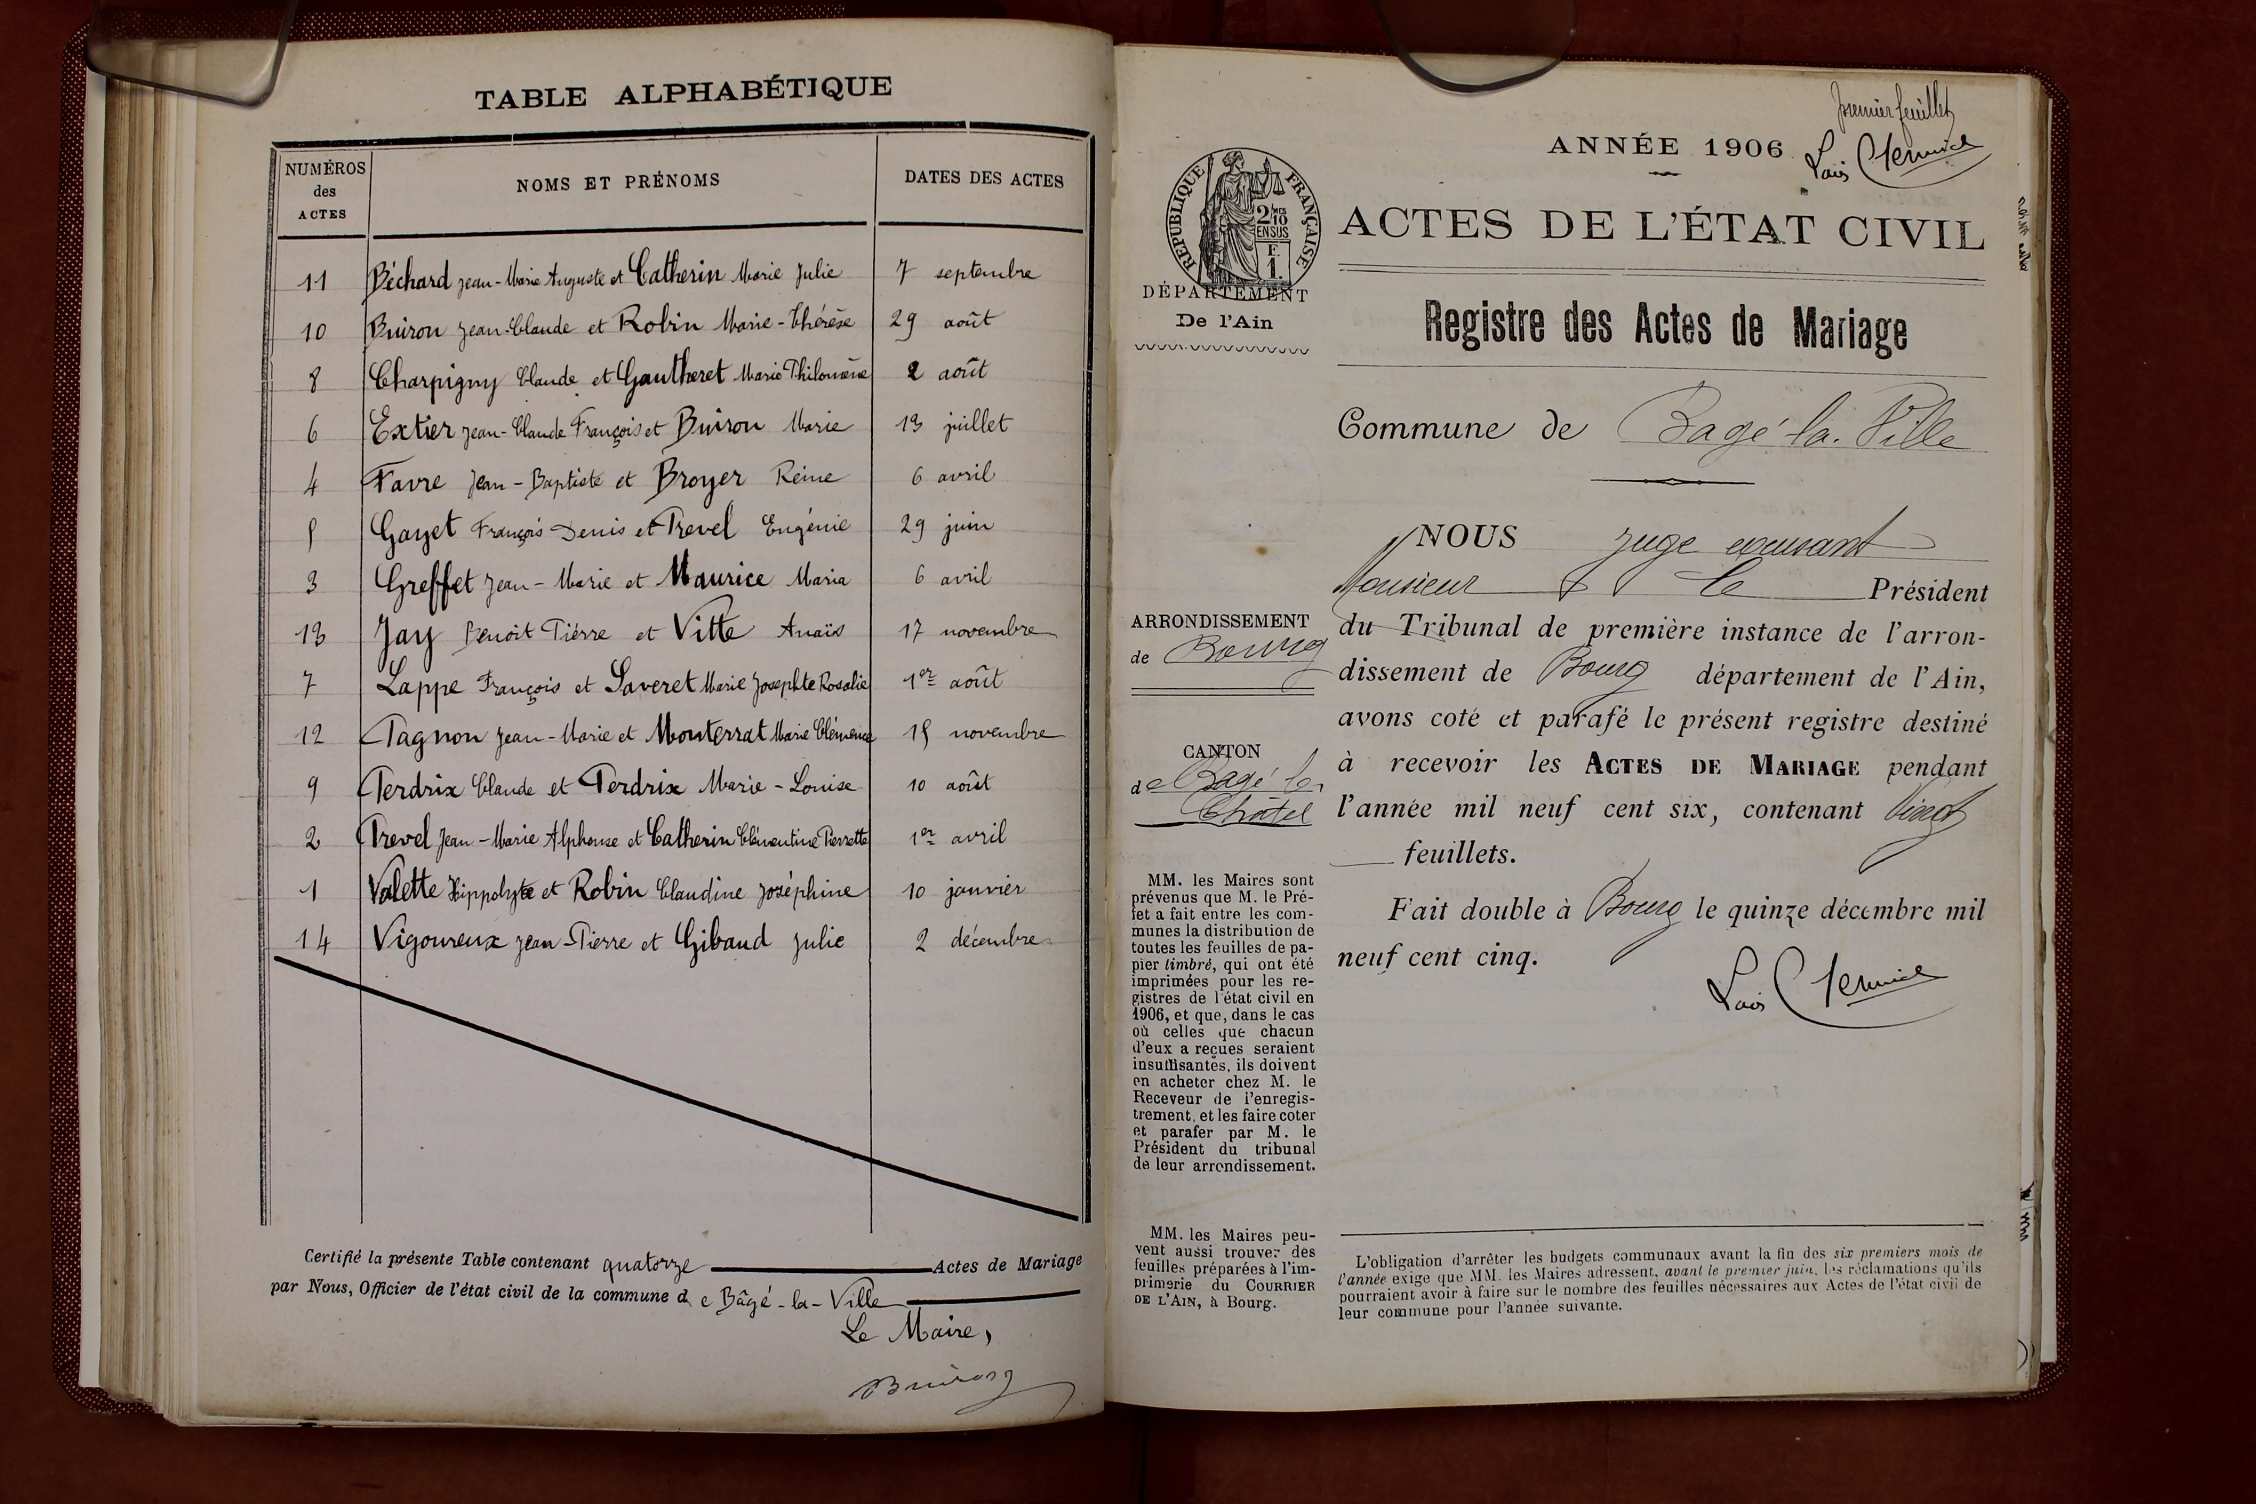 TABLE ALPHABÉTIQUE
NUMÉROS des ACTES NOMS ET PRÉNOMS DATES DES ACTES
11 Béchard Jean-Marie Auguste et Catherin Marie Julie 7 septembre
10 Buiron Jean-Claude et Robin Marie-Thérèse 29 août
8 Charpigny Claude et Gautheret Marie Philomène 2 août
6 Extier Jean-Claude François et Buiron Marie 13 juillet
4 Favre Jean-Baptiste et Broyer Reine 6 avril
5 Gayet François Denis et Prevel Eugénie 29 juin
3 Greffet Jean-Marie et Maurice Maria 6 avril
13 Jay Benoit Pierre et Vitte Anaïs 17 novembre
7 Lappe François et Saveret Marie Josephte Rosalie 1er août
12 Pagnon Jean-Marie et Monterrat Marie Clémence 15 novembre
9 Perdrix Claude et Perdrix Marie-Louise 10 août
2 Prevel Jean-Marie Alphonse et Catherin Clémentine Pierrette 1er avril
1 Valette Hippolyte et Robin Claudine Joséphine 10 janvier
14 Vigoureux Jean-Pierre et Gibaud Julie 2 décembre
Certifié la présente Table contenant quatorze Actes de Mariage
par Nous, Officier de l'état civil de la commune de Bâgé-la-Ville
Le Maire,
Buiron
premier feuillet
ANNÉE 1906
RÉPUBLIQUE FRANÇAISE
2/10mes
EN SUS
F.
1.
ACTES DE L'ÉTAT CIVIL
DÉPARTEMENT
De l'Ain
Registre des Actes de Mariage
Commune de Bagé-la-Ville
NOUS Juge excusant
Monsieur Le Président
ARRONDISSEMENT
de Bourg
du Tribunal de première instance de l'arron-
dissement de Bourg département de l'Ain,
avons coté et parafé le présent registre destiné
CANTON
de Bagé le
Châtel
à recevoir les ACTES DE MARIAGE pendant
l'année mil neuf cent six, contenant Vingt
feuillets.
Fait double à Bourg le quinze décembre mil
neuf cent cinq.
MM. les Maires sont
prévenus que M. le Pré-
fet a fait entre les com-
munes la distribution de
toutes les feuilles de pa-
pier timbré, qui ont été
imprimées pour les re-
gistres de l'état civil en
1906, et que, dans le cas
où celles que chacun
d'eux a reçues seraient
insuffisantes, ils doivent
en acheter chez M. le
Receveur de l'enregis-
trement, et les faire coter
et parafer par M. le
Président du tribunal
de leur arrondissement.
MM. les Maires peu-
vent aussi trouver des
feuilles préparées à l'im-
primerie du COURRIER
DE L'AIN, à Bourg.
L'obligation d'arrêter les budgets communaux avant la fin des six premiers mois de
l'année exige que MM. les Maires adressent, avant le premier juin, les réclamations qu'ils
pourraient avoir à faire sur le nombre des feuilles nécessaires aux Actes de l'état civil de
leur commune pour l'année suivante.